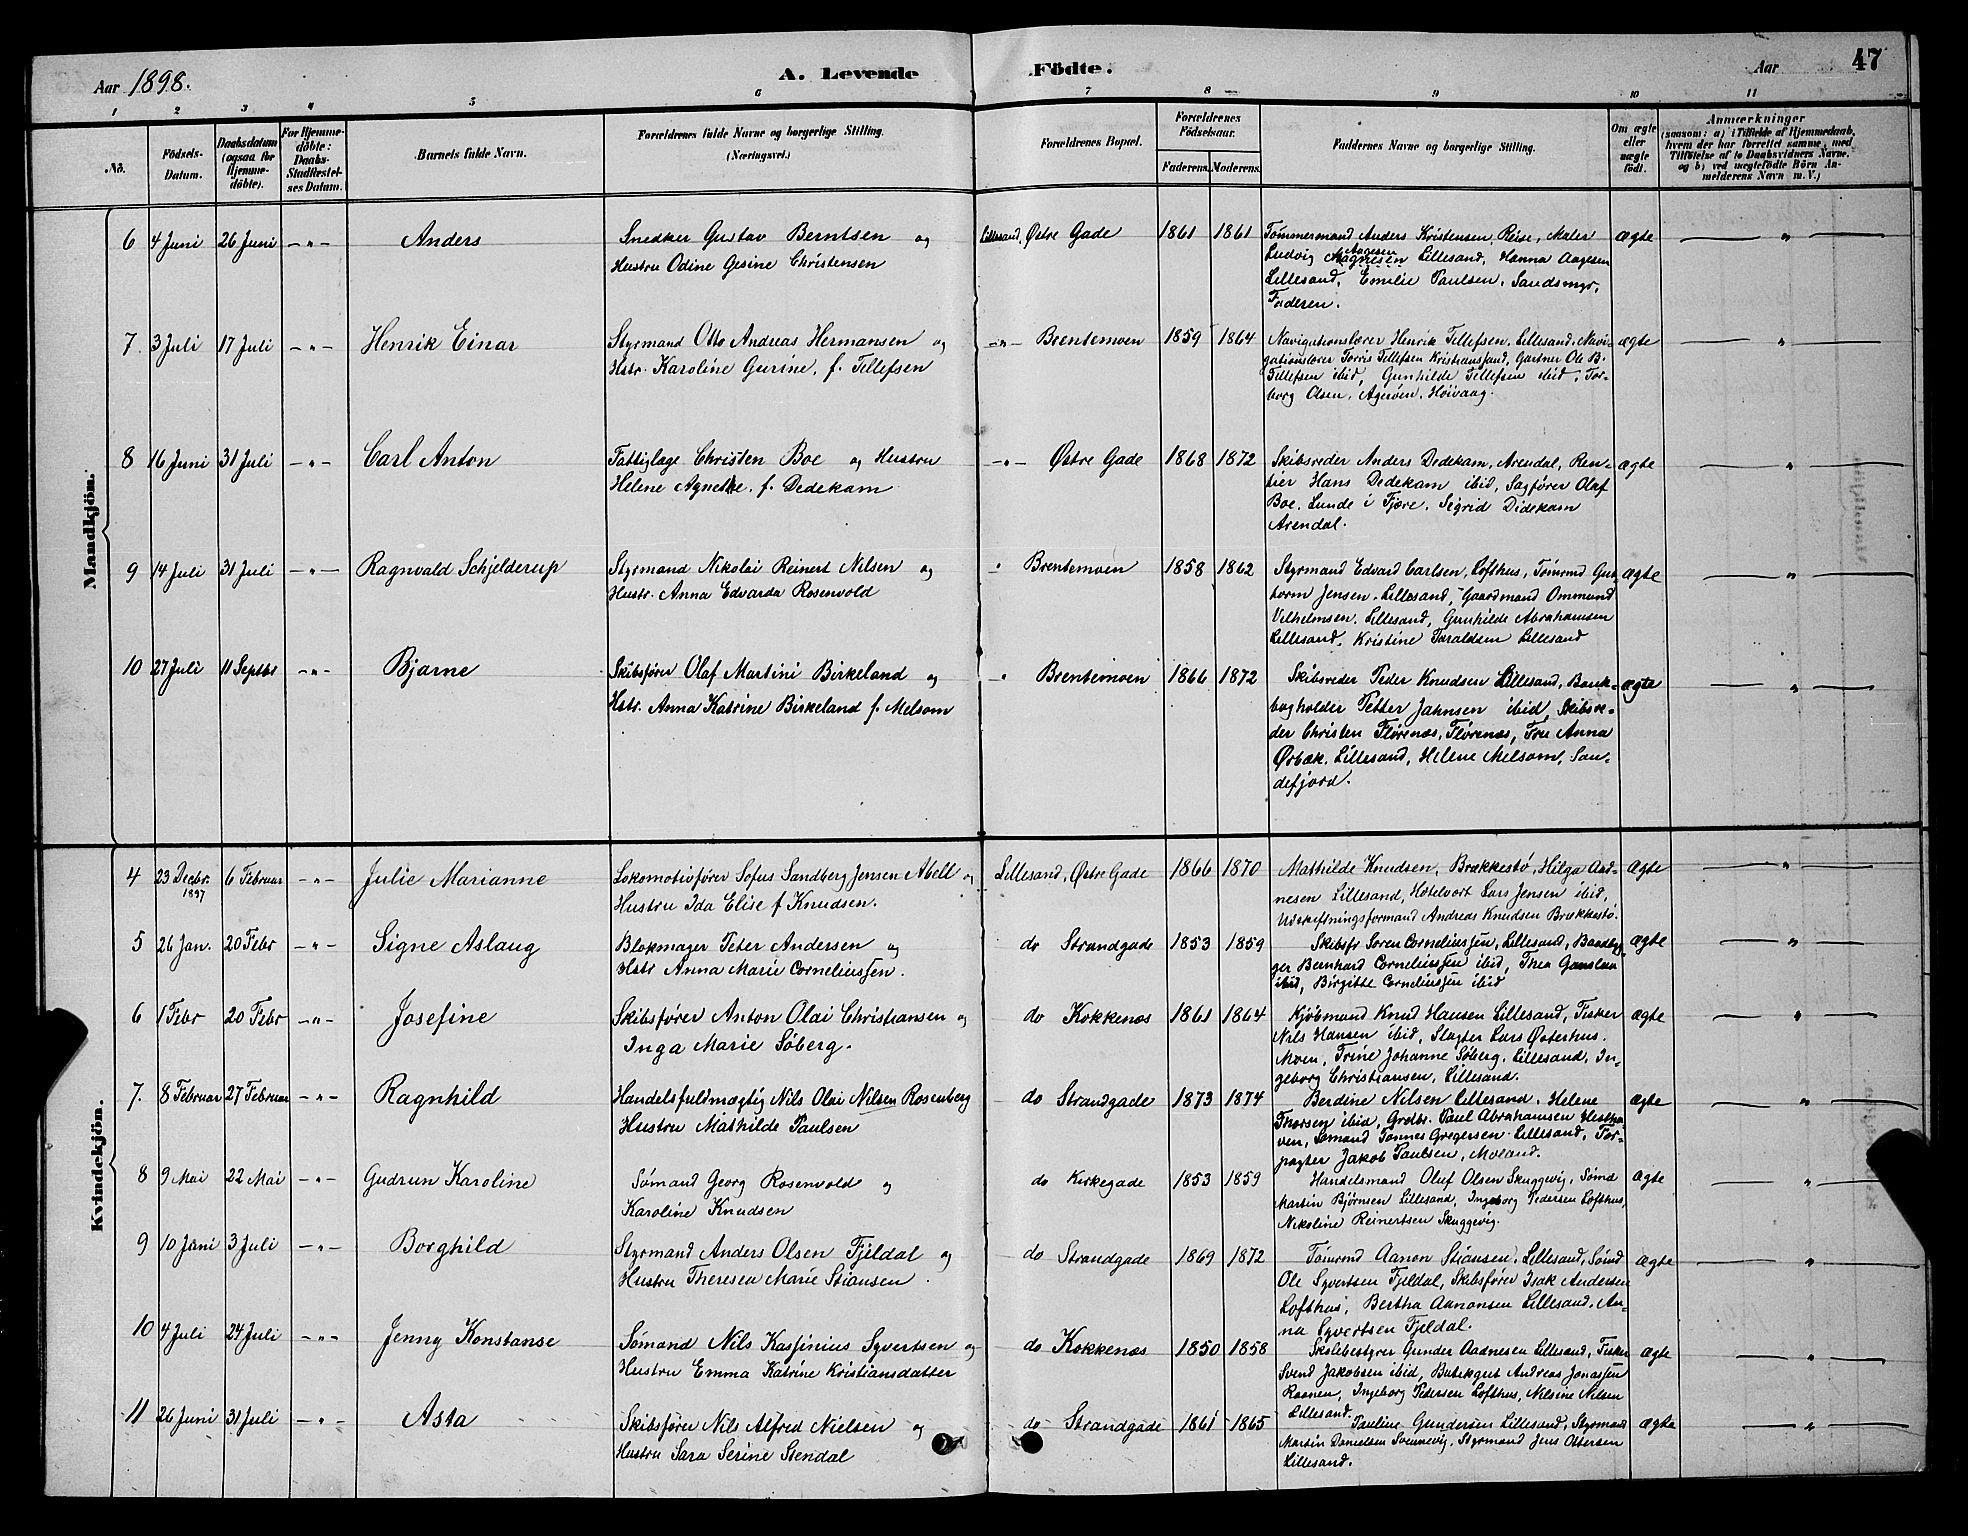 Aar 1898.
A. Levende Födte.
Aar
47
1 2 3 4 5 6 7 8 9 10 11
No.
Födsels-
Datum.
Daabsdatum
(ogsaa for
Hjemme-
döbte).
For Hjemme-
döbte:
Daabs-
Stadfæstel-
ses Datum.
Barnets fulde Navn.
Forældrenes fulde Navne og borgerlige Stilling.
(Næringsvei.)
Forældrenes Bopæl.
Forældrenes
Födselsaar.
Faderens. Moderens.
Faddernes Navne og borgerlige Stilling.
Om ægte
eller
uægte
födt.
Anmærkninger
(saasom: a) i Tilfælde af Hjemmedaab,
hvem der har forrettet samme, med
Tilföielse af to Daabsvidners Navne.
og b) ved uægtefödte Börn An-
melderens Navn m. V.)
Mandkjön.
6 4 Juni 26 Juni -"- Anders Snedker Gustav Berntsen og Lillesand, Østre Gade 1861 1861 Tömmermand Anders Kristensen, Reise, Maler ægte "
Hustru Odine Gesine Christensen
Aagesen
Ludvig Magnesen Lillesand, Hanna Aagesen
Lillesand, Emilie Paulsen, Sandsmyr,
Faderen.
7. 3 Juli 17 Juli -"- Henrik Einar Styrmand Otto Andreas Hermansen og -"- Brentemoen 1859 1864 Navigationslærer Henrik Tellefsen, Lillesand, Navi- ægte "
Hstr. Karoline Gurine, f. Tellefsen
gationslærer Torris Tellefsen Kristianssand, Gartner Ole B.
Tellefsen ibid, Gunhilde Tellefsen ibid, Tor-
borg Olsen, Ageröen, Höivaag.
8 16 Juni 31 Juli -"- Carl Anton Fattiglæge Christen Boe og Hustru -"- Østre Gade 1868 1872 Skibsreder Anders Dedekam, Arendal, Ren- ægte "
Helene Agnethe, f. Dedekam
tier Hans Dedekam ibid, Sagförer Olaf
Boe, Lunde i Fjære, Sigrid Didekam
Arendal.
9 14 Juli 31 Juli -"- Ragnvald Schjelderup Styrmand Nikolai Reinert Nilsen og " Brentemoen 1858 1862 Styrmand Edvard Carlsen, Lofthus, Tömrmd Gut- ægte "
Hustr. Anna Edvarda Rosenvold
torm Jensen, Lillesand, Gaardmand Ommund
Vilhelmsen, Lillesand, Gunhilde Abrahamsen
Lillesand, Kristine Taraldsen Lillesand
10 27 Juli 11 Septbr -"- Bjarne Skibsförer Olaf Martini Birkeland og " Brentemoen 1866 1872 Skibsreder Peder Knudsen Lillesand, Bank- ægte "
Hstr. Anna Katrine Birkeland f. Melsom
bogholder Petter Jahnsen ibid, Skibsre-
der Christen Flørenæs, Flørenæs, Fru Anna
Ørbæk, Lillesand, Helene Melsom, San-
defjord.
Kvindekjön.
4 23 Decbr. 6 Februar -"- Julie Marianne Lokomotivförer Sofus Sandberg Jensen Abell og Lillesand, Østre Gade 1866 1870 Mathilde Knudsen, Brækkestö, Helga Aad- Ægte "
1897
Hustru Ida Elise f Knudsen.
nesen Lillesand, Hotelvært Lars Jensen ibid,
Udskiftningsformand Andreas Knudsen Brækkestö.
5 26 Jan. 20 Febr -"- Signe Aslaug Blokmager Peter Andersen og do Strandgade 1853 1859 Skibsfr Søren Corneliussen, Lillesand, ægte "
Hstr Anna Marie Corneliussen.
ger Bernhard Corneliussen ibid, Thea
ibid, Birgitte Corneliussen ibid
6 1 Febr 20 Febr -"- Josefine Skibsförer Anton Olai Christiansen og do Kokkenæs 1861 1864 Kjöbmand Knud Hansen Lillesand, Fisker ægte "
Inga Marie Söberg.
Nils Hansen ibid, Slagter Lars Østerhus.
Moen, Trine Johanne Söberg, Lillesand, In-
geborg Christiansen, Lillesand.
7. 8 Februar 27 Februar -"- Ragnhild Handelsfuldmægtig Nils Olai Nilsen Rosenberg do Strandgade 1873 1874 Berdine Nilsen Lillesand, Helene ægte "
Hustru Mathilde Paulsen
Thorsen ibid, Grdbr. Paul Abrahamsen Hestha-
ven, Sømand Tønnes Gregersen Lillesand, For-
pagter Jakob Paulsen, Moland.
8 9 Mai 22 Mai -"- Gudrun Karoline Sømand Georg Rosenvold og do Kirkegade 1853 1859 Handelsmand Oluf Olsen Skuggevig, Sömd ægte "
Karoline Knudsen
Martin Björnsen Lillesand, Ingeborg Pedersen Lofthus,
Nikoline Reinertsen Skuggevig.
9 10 Juni 3 Juli -"- Borghild Styrmand Anders Olsen Fjeldal og do Strandgade 1869 1872 Tömrmd Aanon Stiansen, Lillesand, Sömd ægte "
Hustru Theresea Marie Stiansen.
Ole Syvertsen Fjeldal, Skibsförer Isak Andersen
Lofthus, Bertha Aanonsen Lillesand, An-
na Syvertsen Fjeldal.
10 4 Juli 24 Juli -"- Jenny Konstanse Sömand Nils Kasfinius Syvertsen og do Kokkenæs 1850 1858 Skolebestyrer Gunder Aadnesen Lillesand, Fisker ægte "
Hustru Emma Katrine Kristiansdatter
Svend Jakobsen ibid, Andreas Jonassen
Ingeborg Pedersen Lofthus, Nilsine Nilsen
Lillesand.
11 26 Juni 31 Juli -"- Asta Skibsförer Nils Alfred Nielsen og do Strandgade 1861 1865 Pauline Gundersen Lillesand, Styrmand ægte "
Hustru Sara Serine Stendal
Martin Danielsen Svennevig, Styrmand Jens Ottersen
Lillesand.